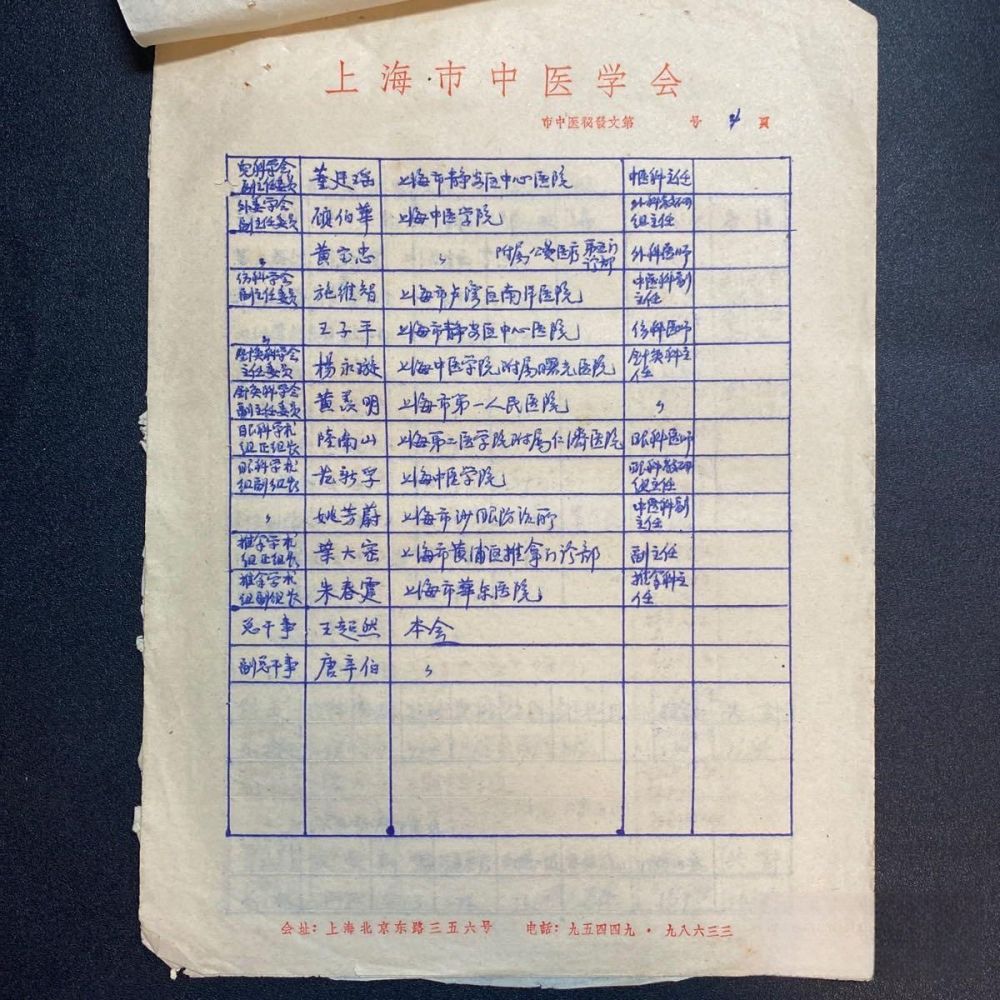 上海市中医学会
市中医秘發文第 号 頁
儿科学会副主任委员 董廷瑶 上海市静安区中心医院 中医科主任
外科学会副主任委员 顾伯華 上海中医学院 外科教研组主任
〃 黄宝忠 〃 附属公费医疗第五门诊部 外科医师
伤科学会副主任委员 施维智 上海市卢湾区南洋医院 中医科副主任
〃 王子平 上海市静安区中心医院 伤科医师
針灸科学会主任委员 楊永璇 上海中医学院附属曙光医院 針灸科主任
針灸科学会副主任委员 黄羡明 上海市第一人民医院 〃
眼科学术组正组长 陸南山 上海第二医学院附属仁濟医院 眼科医师
眼科学术组副组长 范新孚 上海中医学院 眼科教研组主任
〃 姚芳蔚 上海市沙眼防治所 中医科副主任
推拿学术组正组长 葉大密 上海市黄浦区推拿门诊部 副主任
推拿学术组副组长 朱春霆 上海市華东医院 推拿科主任
总干事 王超然 本会
副总干事 唐辛伯 〃
会址：上海北京东路三五六号 电話：九五四四九・九八六三三